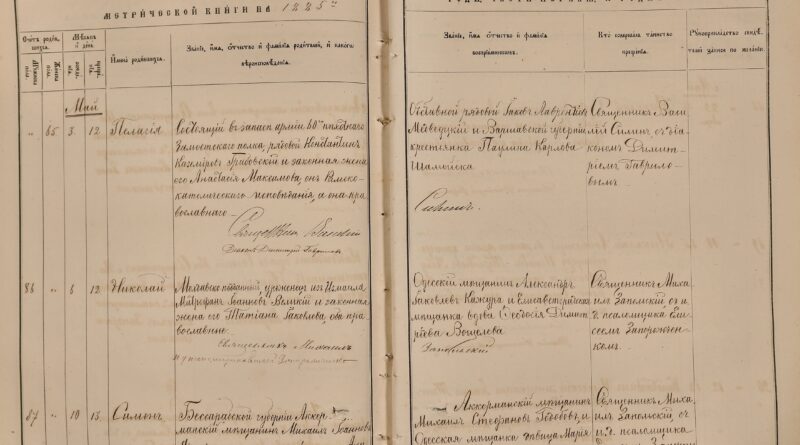 МЕТРИЧЕСКОЙ КНИГИ НА 1885й
Счетъ родив-
шихся.
Мѣсяцъ
и день.
Имена родившихся.
Званіе, имя, отчество и фамилія родителей, и какого
вѣроисповѣданія.
Май
„ 65 3. 12 Пелагія
Состоящій въ запасѣ арміи 60го пѣхотнаго
Замостскаго полка, рядовой Константинъ
Казиміровъ Грабовскій и законная жена
его Анастасія Максимова, онъ Римско-
католическаго исповѣданія, а она пра-
вославнаго.
Священникъ
Діаконъ Димитрій Гавриловъ
86 „ 6 12 Николай
Молдавско-подданный, уроженецъ изъ Измаила
Митрофанъ Іоанновъ Великій и законная
жена его Татіана Іаковлева, оба пра-
вославные.
Священникъ Михаилъ
87 „ 10 13 Симонъ
Бессарабской губерніи Аккер-
манскій мѣщанинъ Михаилъ Іоанновъ
Званіе, имя, отчество и фамилія
воспріемниковъ.
Кто совершалъ таинство
крещенія.
Рукоприкладство свидѣ-
телей записи по желанію.
Отставной рядовой Іаковъ Лаврентіевъ
и Варшавской губерніи
крестьянка Паулина Карлова
Шамотска
Священникъ Васи-
лій Силинъ съ діа-
кономъ Димит-
ріемъ Гаврило-
вымъ.
Силинъ.
Одесскій мѣщанинъ Александръ
Іаковлевъ Кажура, и Елисаветградская
мѣщанка вдова Ѳеодосія Димит-
ріева Вощелева
Запольскій
Священникъ Миха-
илъ Запольскій съ и.
д. псаломщика Ели-
сеемъ Запорожчен-
комъ.
Аккерманскій мѣщанинъ
Михаилъ Стефановъ и
Одесская мѣщанка дѣвица Марія
Священникъ Миха-
илъ Запольскій съ
и. д. псаломщика